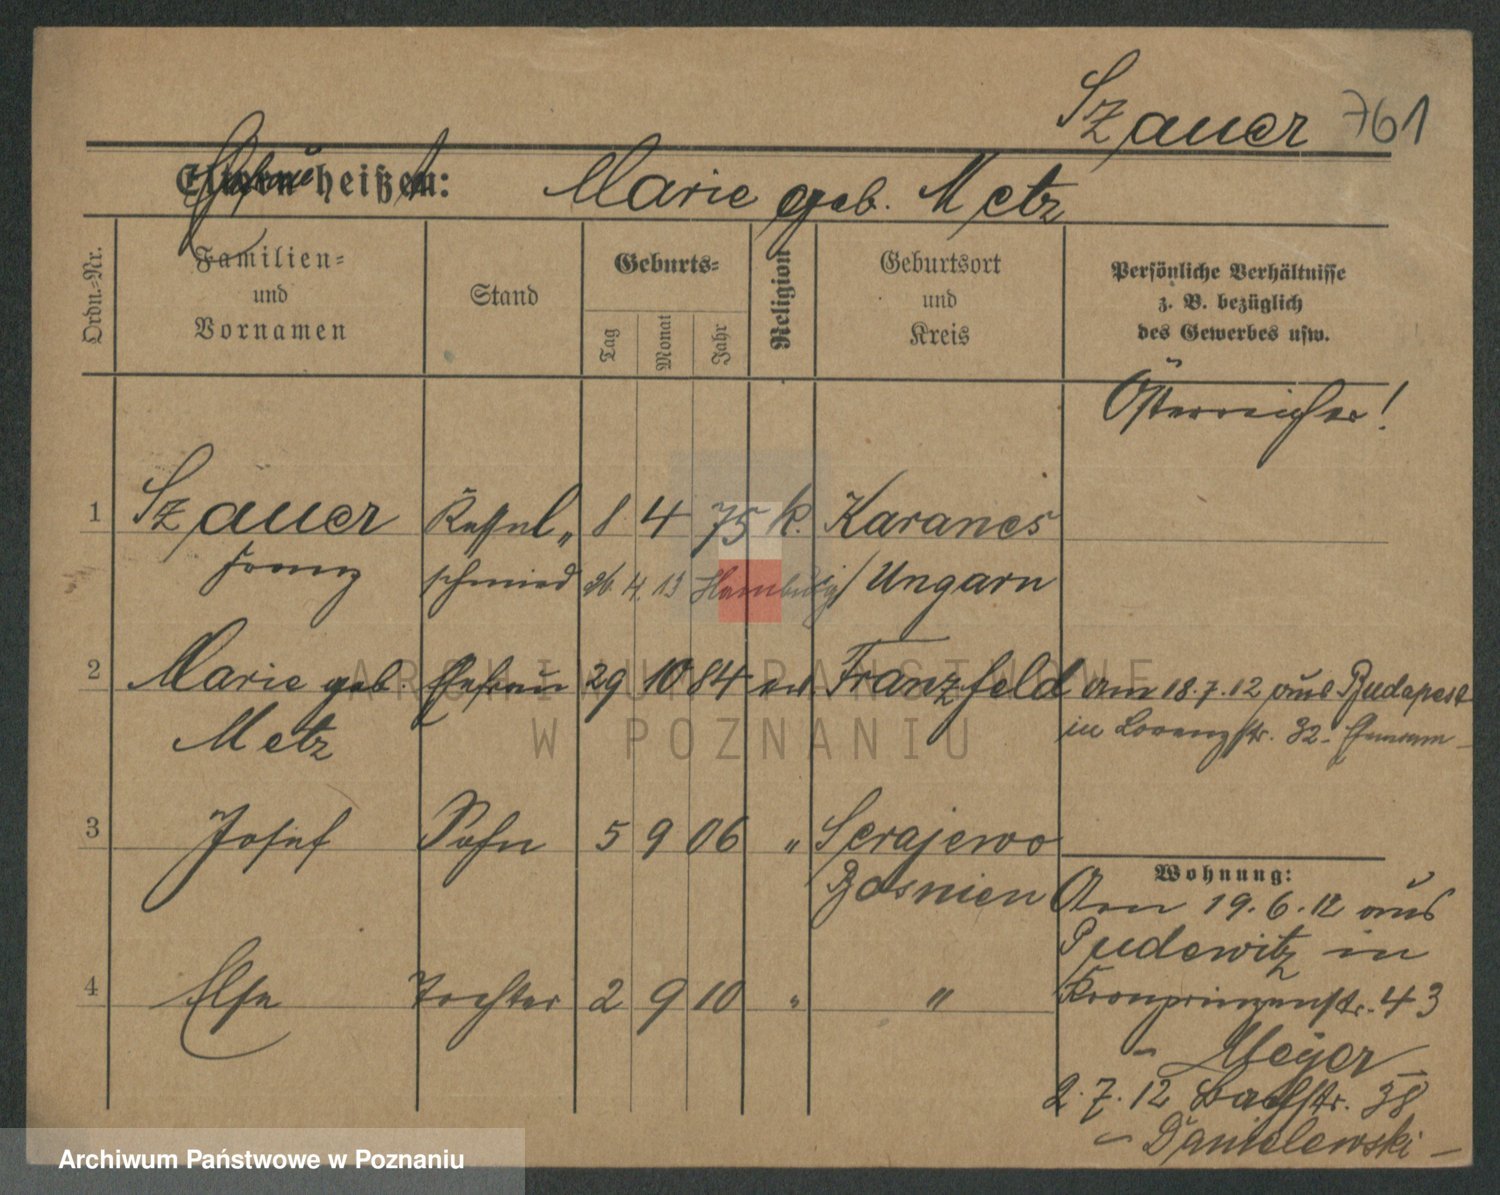 Szauer 761
Eltern heißen: Marie geb. Metz
Ehefrau
Ordn.-Nr.
Familien-
und
Vornamen
Stand
Geburts-
Tag
Monat
Jahr
Religion
Geburtsort
und
Kreis
Persönliche Verhältnisse
z. B. bezüglich
des Gewerbes usw.
Österreicher!
1 Szauer Kessel„ 8 4 75 k. Karancs
Franz schmied 26. 4. 13 Hamburg / Ungarn
2 Marie geb. Ehefrau 29 10 84 ev. Franzfeld am 18.7.12 aus Budapest
Metz in Lorenzstr. 32 - Ehemann -
3 Josef Sohn 5 9 06 " Serajewo
Bosnien
Wohnung:
Am 19.6.12 aus
Pudewitz in
4 Else Tochter 2 9 10 " " Kronprinzenstr. 43
- Meyer -
2.7.12 Bachstr. 38
- Danielewski -
ARCHIWUM PAŃSTWOWE
W POZNANIU
Archiwum Państwowe w Poznaniu